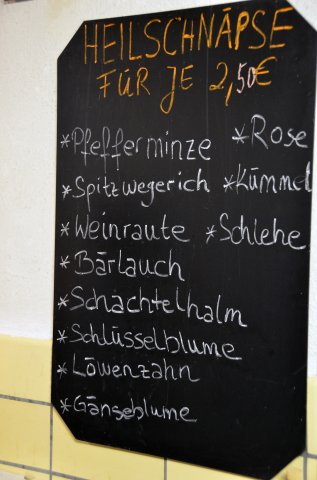 HEILSCHNÄPSE
FÜR JE 2,50€
*Pfefferminze *Rose
*Spitzwegerich *Kümmel
*Weinraute *Schlehe
*Bärlauch
*Schachtelhalm
*Schlüsselblume
*Löwenzahn
*Gänseblume